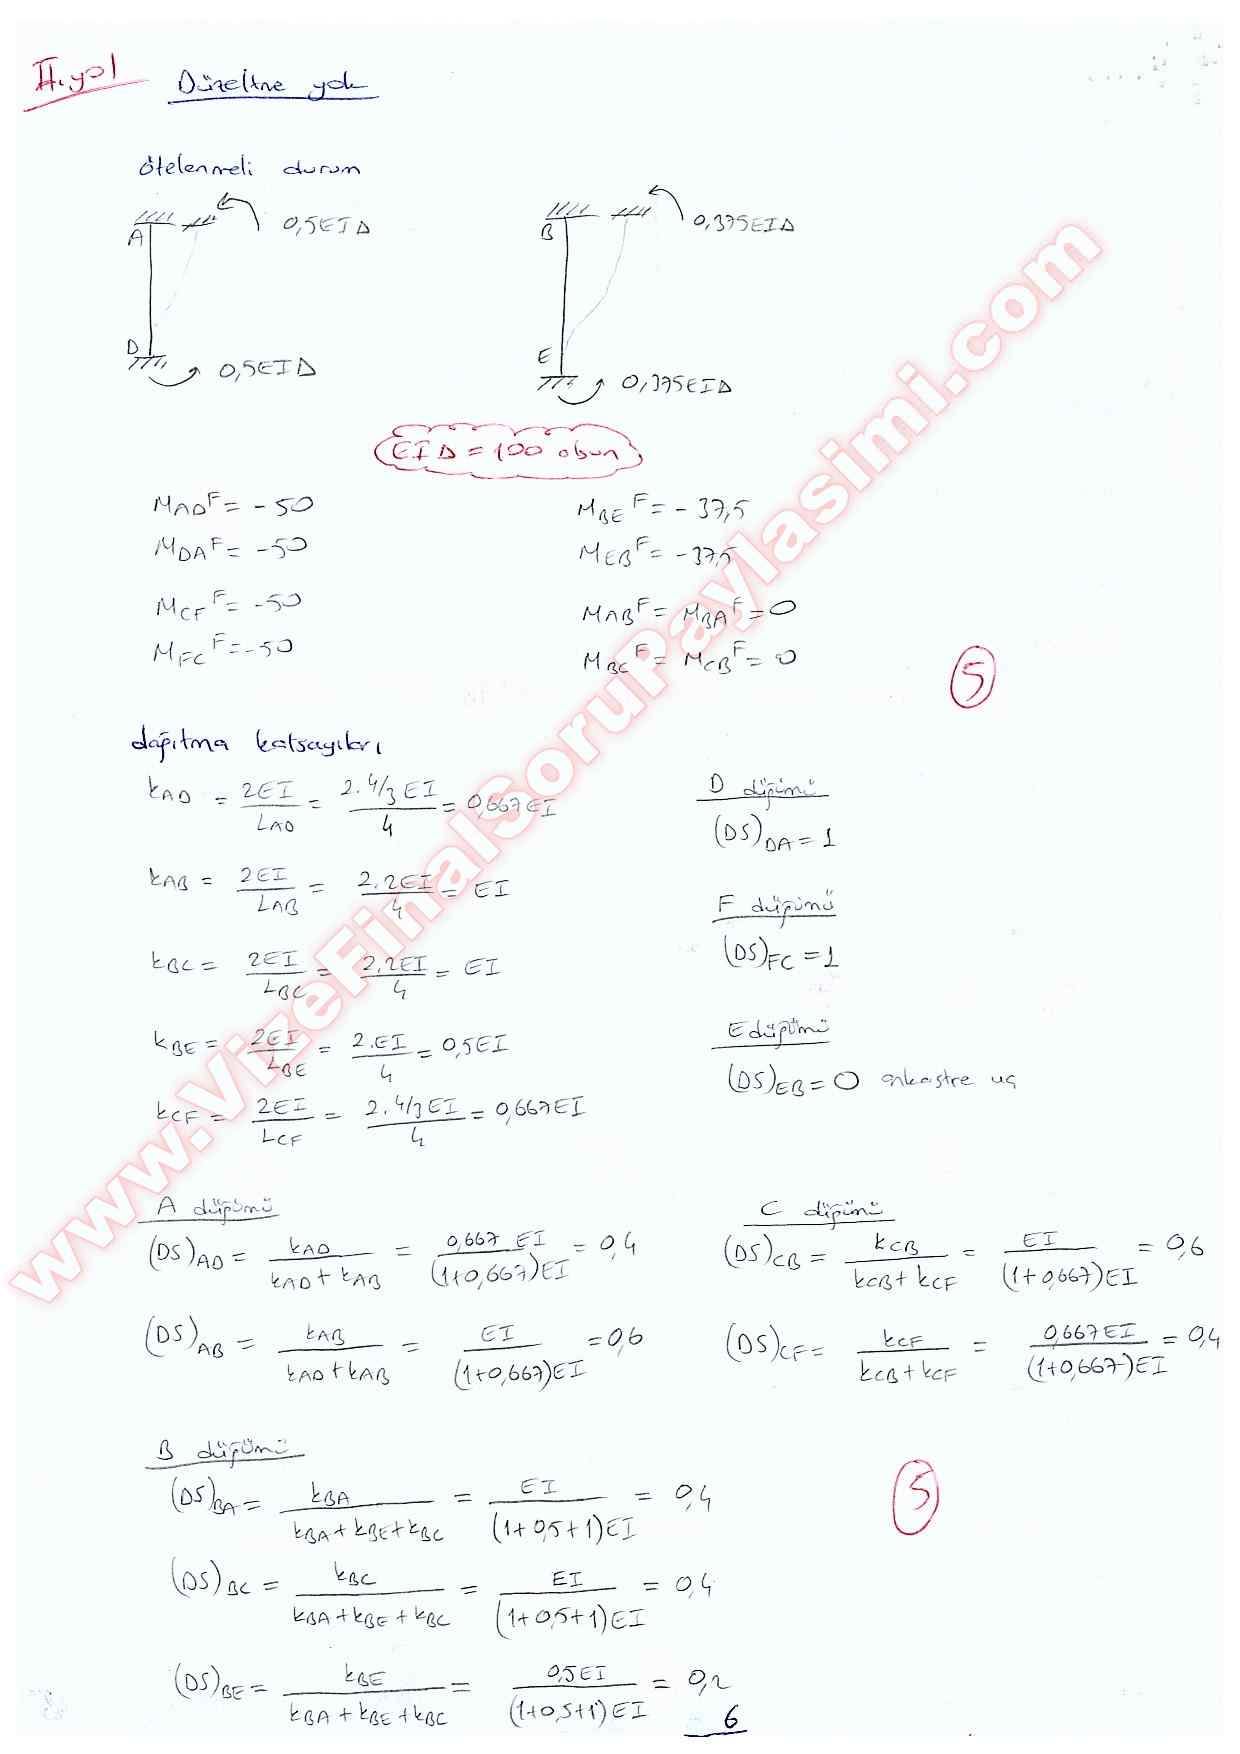 II.yol Düzeltme yok
ötelenmeli durum
A 0,5EIΔ B 0,375EIΔ
D 0,5EIΔ E 0,375EIΔ
EIΔ = 100 olsun
M_AD^F = -50 M_BE^F = -37,5
M_DA^F = -50 M_EB^F = -37,5
M_CF^F = -50 M_AB^F = M_BA^F = 0
M_FC^F = -50 M_BC^F = M_CB^F = 0
5
dağıtma katsayıları
k_AD = 2EI/L_AD = 2.4/3EI/4 = 0,667EI
k_AB = 2EI/L_AB = 2.2EI/4 = EI
k_BC = 2EI/L_BC = 2.2EI/4 = EI
k_BE = 2EI/L_BE = 2.EI/4 = 0,5EI
k_CF = 2EI/L_CF = 2.4/3EI/4 = 0,667EI
D düğümü
(DS)_DA = 1
F düğümü
(DS)_FC = 1
E düğümü
(DS)_EB = 0 ankastre uç
A düğümü
(DS)_AD = k_AD/(k_AD + k_AB) = 0,667 EI/(1+0,667)EI = 0,4
(DS)_AB = k_AB/(k_AD + k_AB) = EI/(1+0,667)EI = 0,6
C düğümü
(DS)_CB = k_CB/(k_CB + k_CF) = EI/(1+0,667)EI = 0,6
(DS)_CF = k_CF/(k_CB + k_CF) = 0,667EI/(1+0,667)EI = 0,4
B düğümü
(DS)_BA = k_BA/(k_BA + k_BE + k_BC) = EI/(1+0,5+1)EI = 0,4
5
(DS)_BC = k_BC/(k_BA + k_BE + k_BC) = EI/(1+0,5+1)EI = 0,4
(DS)_BE = k_BE/(k_BA + k_BE + k_BC) = 0,5EI/(1+0,5+1)EI = 0,2
6
www.VizeFinalSoruPaylasimi.com